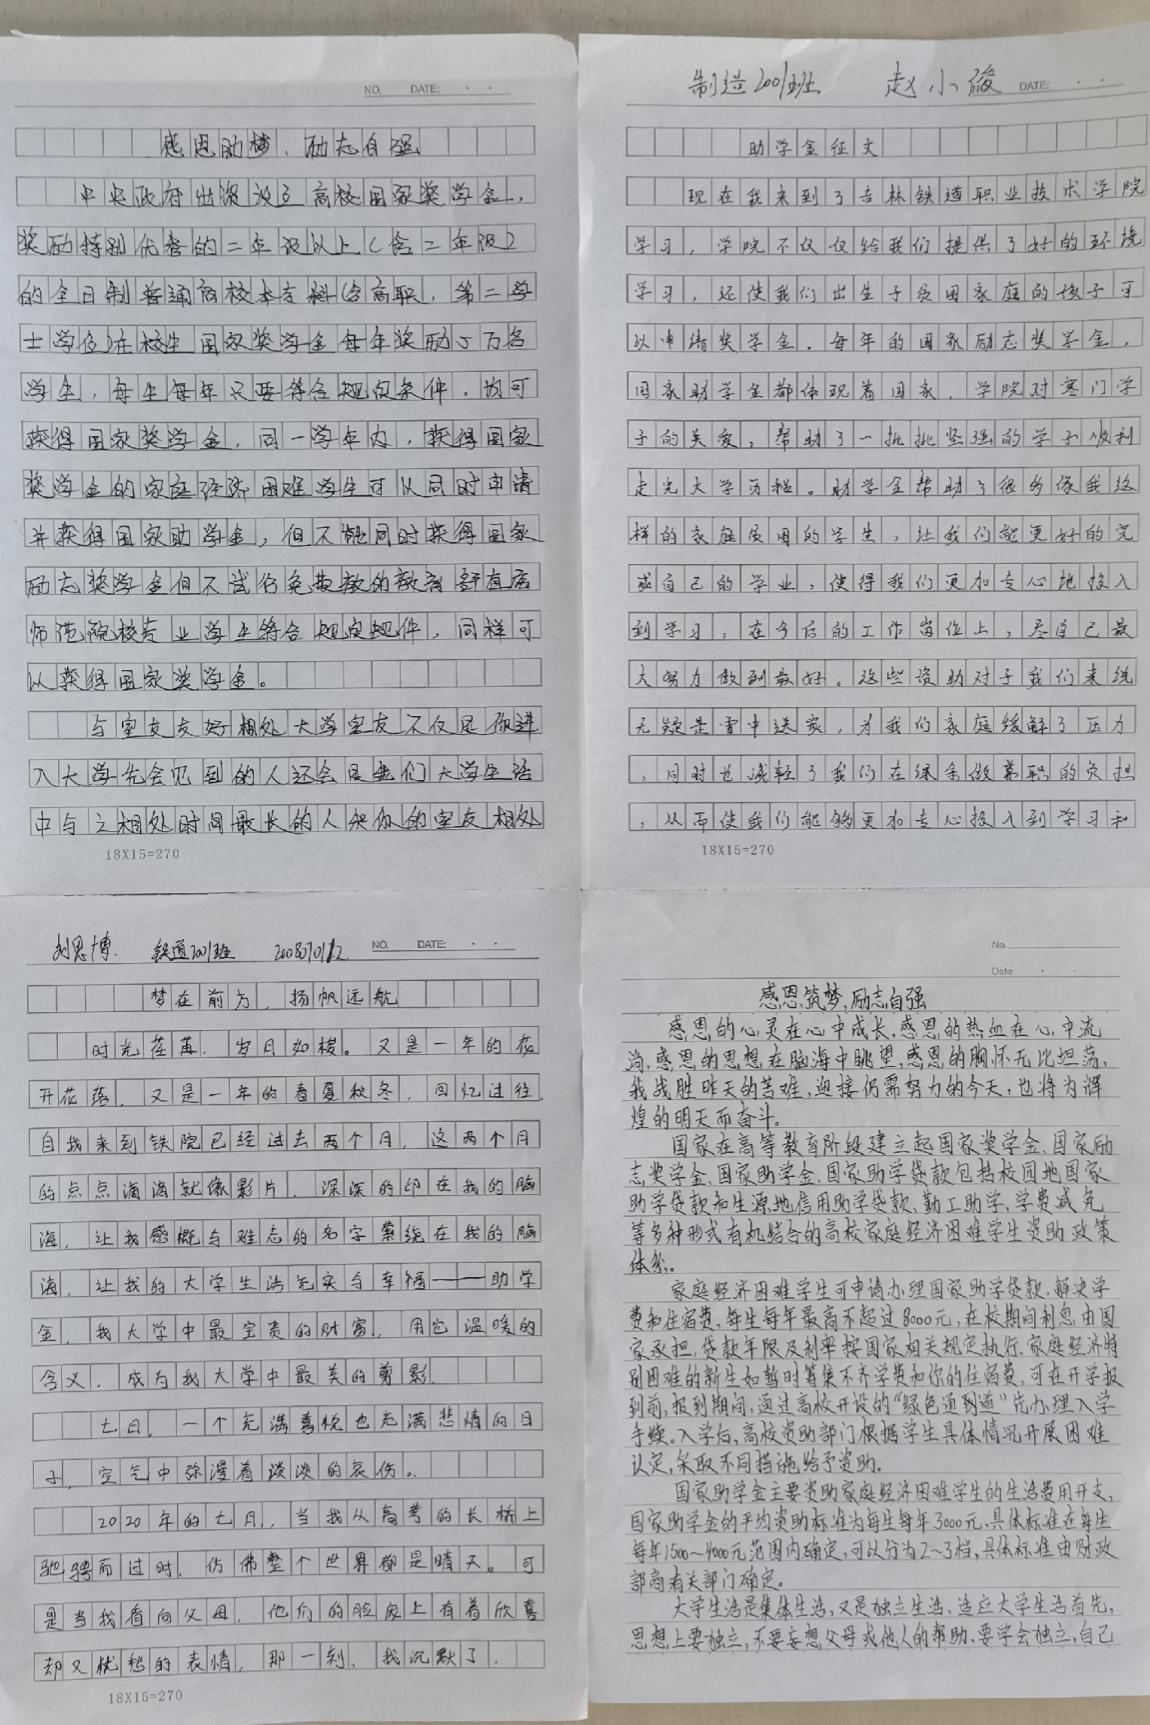 NO. DATE: · ·
感恩助梦、励志自强
中央政府出资设立高校国家奖学金,
奖励特别优秀的二年级以上(含二年级)
的全日制普通高校本专科(含高职、第二学
士学位)在校生国家奖学金每年奖励5万名
学生,每生每年只要符合规定条件,均可
获得国家奖学金,同一学年内,获得国家
奖学金的家庭经济困难学生可以同时申请
并获得国家助学金,但不能同时获得国家
励志奖学金但不试行免费教的教育部直属
师范院校专业学生符合规定规件,同样可
以获得国家奖学金。
与室友友好相处大学室友不仅是你进
入大学先会见到的人还会是我们大学生活
中与之相处时间最长的人和你的室友相处
18X15=270
制造2001班 赵小俊 DATE: · ·
助学金征文
现在我来到了吉林铁道职业技术学院
学习,学院不仅仅给我们提供了好的环境
学习,还使我们出生于贫困家庭的孩子可
以申请奖学金。每年的国家励志奖学金,
国家助学金都体现着国家、学院对寒门学
子的关爱,帮助了一批批坚强的学子顺利
走完大学历程。助学金帮助了很多像我这
样的家庭困难的学生,让我们能更好的完
成自己的学业,使得我们更加专心地投入
到学习,在今后的工作岗位上,尽自己最
大努力做到最好。这些资助对于我们来说
无疑是雪中送炭,为我们家庭缓解了压力
,同时也减轻了我们在课余做兼职的负担
,从而使我们能够更加专心投入到学习和
18X15=270
刘思博. 铁道2001班 NO. DATE: · ·
梦在前方,扬帆远航
时光荏苒,岁月如梭。又是一年的花
开花落,又是一年的春夏秋冬,回忆过往,
自我来到铁院已经过去两个月,这两个月
的点点滴滴就像影片,深深的印在我的脑
海,让我感概与难忘的名字萦绕在我的脑
海,让我的大学生活充实与幸福——助学
金,我大学中最宝贵的财富,用它温暖的
含义,成为我大学中最美的剪影.
七月,一个充满喜悦也充满悲情的日
子,空气中弥漫着淡淡的哀伤。
2020年的七月,当我从高考的长桥上
驰骋而过时,仿佛整个世界都是晴天。可
是当我看向父母,他们的脸庞上有着欣喜
却又忧愁的表情,那一刻,我沉默了.
18X15=270
No.
Date · ·
感恩筑梦,励志自强
感恩的心灵在心中成长,感恩的热血在心中流
淌,感恩的思想在脑海中眺望,感恩的胸怀无比坦荡,
我战胜昨天的苦难,迎接仍需努力的今天,也将为辉
煌的明天而奋斗。
国家在高等教育阶段建立起国家奖学金、国家励
志奖学金、国家助学金、国家助学贷款包括校园地国家
助学贷款和生源地信用助学贷款、勤工助学、学费减免
等多种形式有机结合的高校家庭经济困难学生资助政策
体系。
家庭经济困难学生可申请办理国家助学贷款,解决学
费和住宿费,每生每年最高不超过8000元,在校期间利息由国
家承担,贷款年限及利率按国家相关规定执行,家庭经济特
别困难的新生如暂时筹集不齐学费和你的住宿费,可在开学报
到前,报到期间,通过高校开设的“绿色通道”先办理入学
手续。入学后,高校资助部门根据学生具体情况开展困难
认定,采取不同措施给予资助。
国家助学金主要资助家庭经济困难学生的生活费用开支,
国家助学金的平均资助标准为每生每年3000元,具体标准在每生
每年1500~4000元范围内确定,可以分为2~3档,具体标准由财政
部商有关部门确定。
大学生活是集体生活,又是独立生活、适应大学生活首先,
思想上要独立,不要妄想父母或他人的帮助,要学会独立,自己